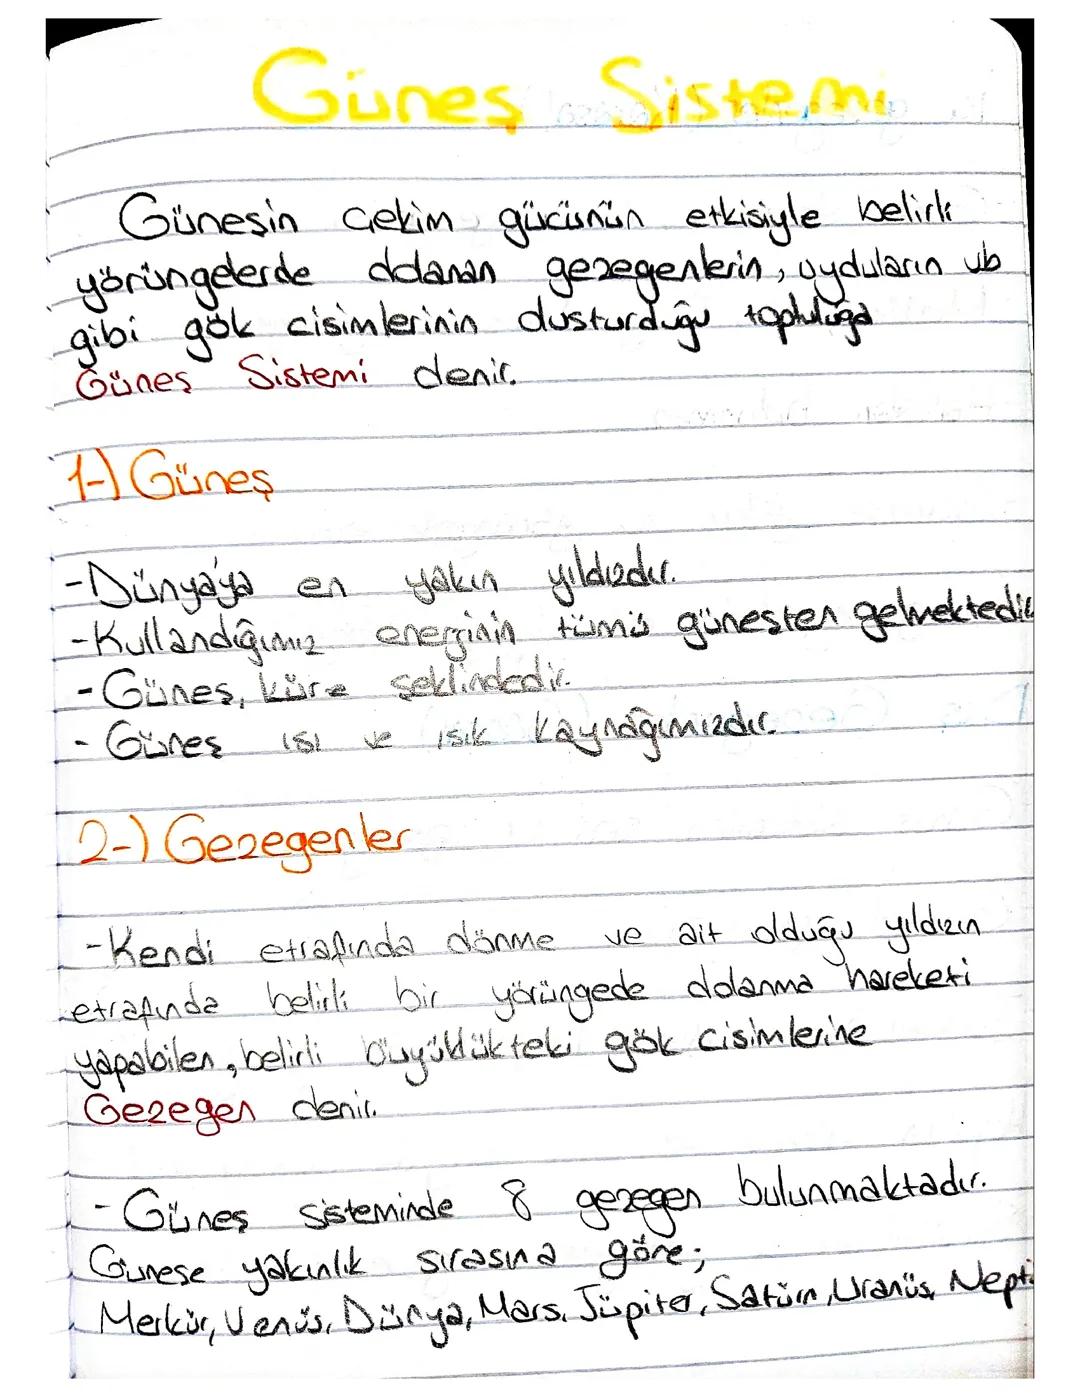 Güneş Sistemi
Güneşin Çekim gücünün etkisiyle belirli
yörüngelerde dolanan gezegenlerin, uyduların vb
gibi gök cisimlerinin dusturduğu topluluğa
Güneş Sistemi denir.
1-) Güneş
-Dünya'ya en yakın yıldızdır.
-Kullandığımız enerjinin tümü güneşten gelmektedir
-Güneş, küre şeklindedir.
- Güneş ısı ve ışık kaynağımızdır.
2-) Gezegenler
-Kendi etrafında dönme ve ait olduğu yıldızın
etrafında belirli bir yörüngede dolanma hareketi
yapabilen, belirli büyüklükteki gök cisimlerine
Gezegen denir.
- Güneş sisteminde 8 gezegen bulunmaktadır.
Güneşe yakınlık sırasına göre;
Merkür, Venüs, Dünya, Mars, Jüpiter, Satürn, Uranüs, Nept